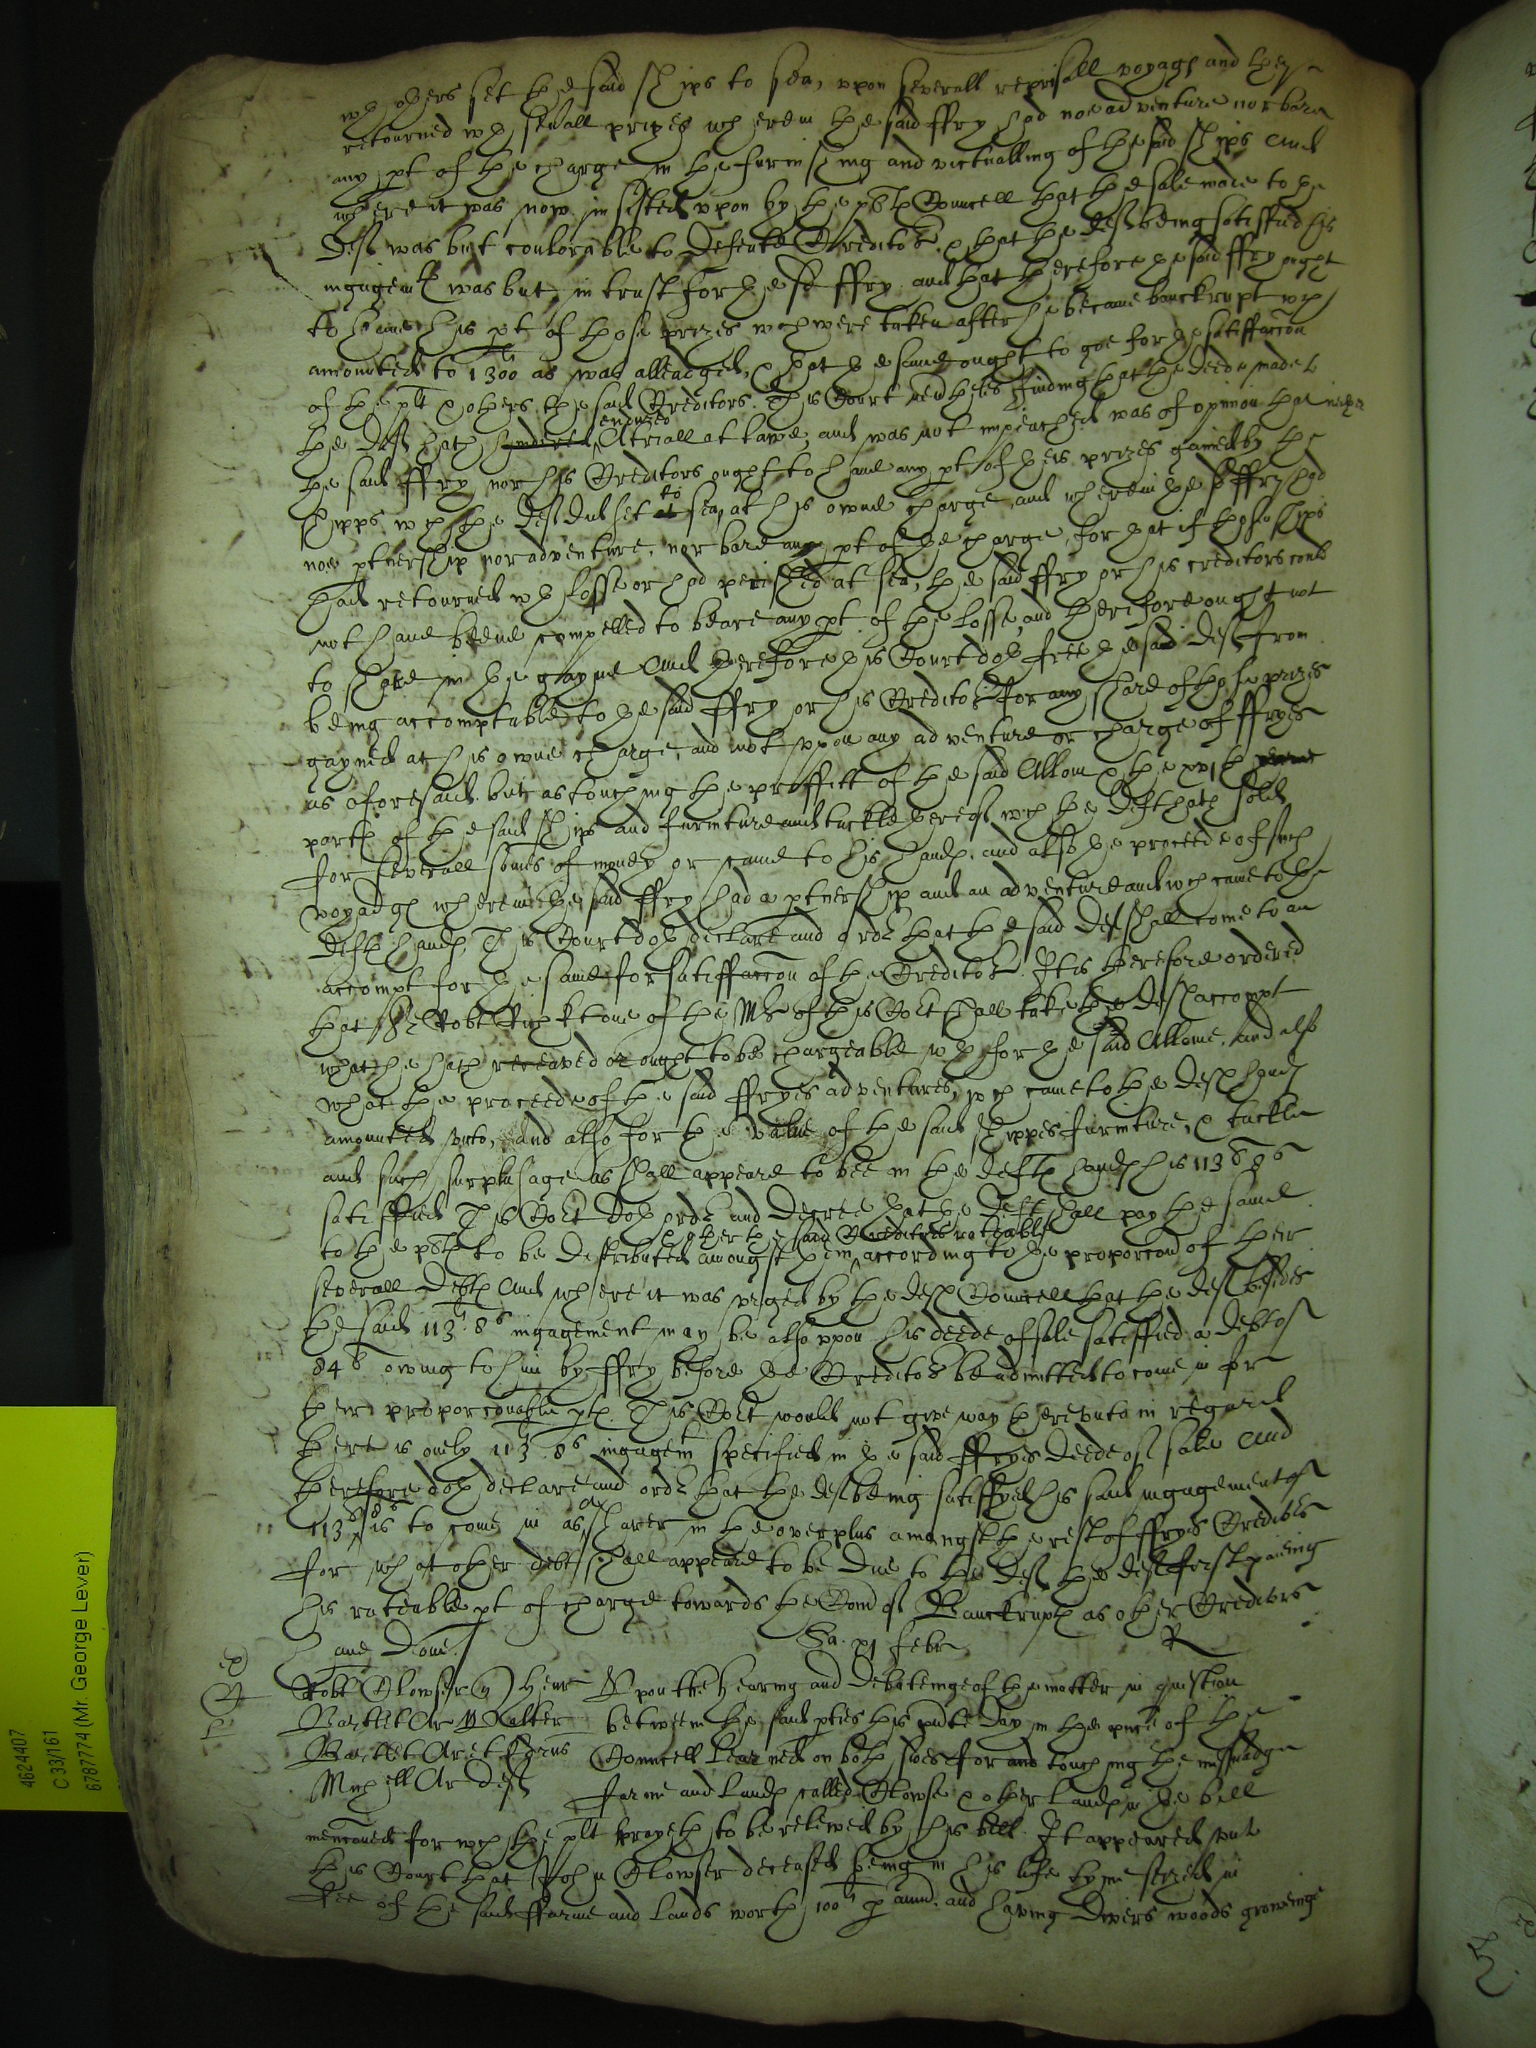 wth others set the said ships to sea, vpon severall reprisall voyags and they
retourned wth seuall prizes wherein the said ffry had noe adventure nor bare
any pt of the charge in the furnishing and victualling of the said ships And
where it was now insisted vpon by the plts Councell that the sale made to the
deft was but coulorable to defeate Creditors & that the deft being satisfied his
ingagemt was but in trust for the sd ffry and that therefore the said ffry ought
to haue his pt of those prizes wch were taken after he became banckrupt wch
amounted to 1300li as was alleadged, & that the same ought to goe for the satisfaccon
of the plt & others the said Creditors. This Court neuertheles finding that the deede made to
the deft hath hindered endured A triall at lawe, and was not impeached was of opinion that neither
the said ffry nor his Creditors ought to haue any pt of theis prizes gained by the
shipps wch the deft did set at to sea, at his owne charge, and wherein the sd ffry had
noe ptnership nor adventure, nor bare any pt of the charge, for that if those ships
had retourned wth losse or had perished at sea, the said ffry or his creditors could
not haue beene compelled to beare any pt of the losse, and therefore ought not
to share in the gayne And therefore this Court doth free the said deft from
being accomptable to the said ffry or his Creditors for any share of those prizes
gayned at his owne charge, and not vpon any adventure or charge of ffryes
as aforesaid. but as touching the proffitt of the said Allom & the xvjth
parts of the said ship and furniture and tackle thereof wch the deft hath sold
for severall somes of money or came to his hands, and also the proceede of such
voyadgs wherein the said ffry had a ptnership and an adventure and wch came to the
defts hands, This Court doth declare and order that the said deft shall come to an
accompt for the same for satisfaccon of the Creditors. It is therefore ordered
that Sr Robt Rich kt one of the Mrs of this Cort shall take the defts accompt
what he hath receaved or ought to be chargeable wth for the said Allome, And also
what the proceede of the said ffryes adventures, wch came to the defts hands
amounted vnto, And also for the value of the said shippes furniture, & tackle
and such surplusage as shall appeare to bee in the defts hands his 113li 8s
satisfied This Cort doth order and decree that the deft shall pay the same
& other the said Creditors rateablie
to the plts to be distributed amongst them according to the proporcon of their
severall debts And where it was vrged by the defts Councell that the deft besides
the said 113li 8s ingagement may be also vpon his deede of sale satisfied a debt of
84li owing to him by ffry before the Creditors be admitted to come in for
their proporconable pts. This Cort would not give way therevnto in regard
there is only 113li 8s ingagemt specified in the said ffryes deede of sale And
therefore doth declare and order that the deft being satisfyed his said ingagement of
113li 8s is to come in as a sharer in the overplus amongst the rest of ffryes Creditors
for what other debt shall appeare to be due to the deft the deft first paieing
his rateable pt of charge towards the Com of Banckrupts as other Creditors
haue done.
Sa. xj febr R
Robt Clowser
Upon the hearing and debateinge of the matter in question
betweene the said pties this pnte day in the pnce of the
Councell learned on both sides for and touching the
farme and lands called Clowse & other lands in the bill
menconed for wch the plt prayeth to be releived by his bill. It appeared vnto
this Court that John Clowser deceased being in his life tyme seized in
fee of the said ffarme and Lands worth 100li p annu. and having divers woods groweinge